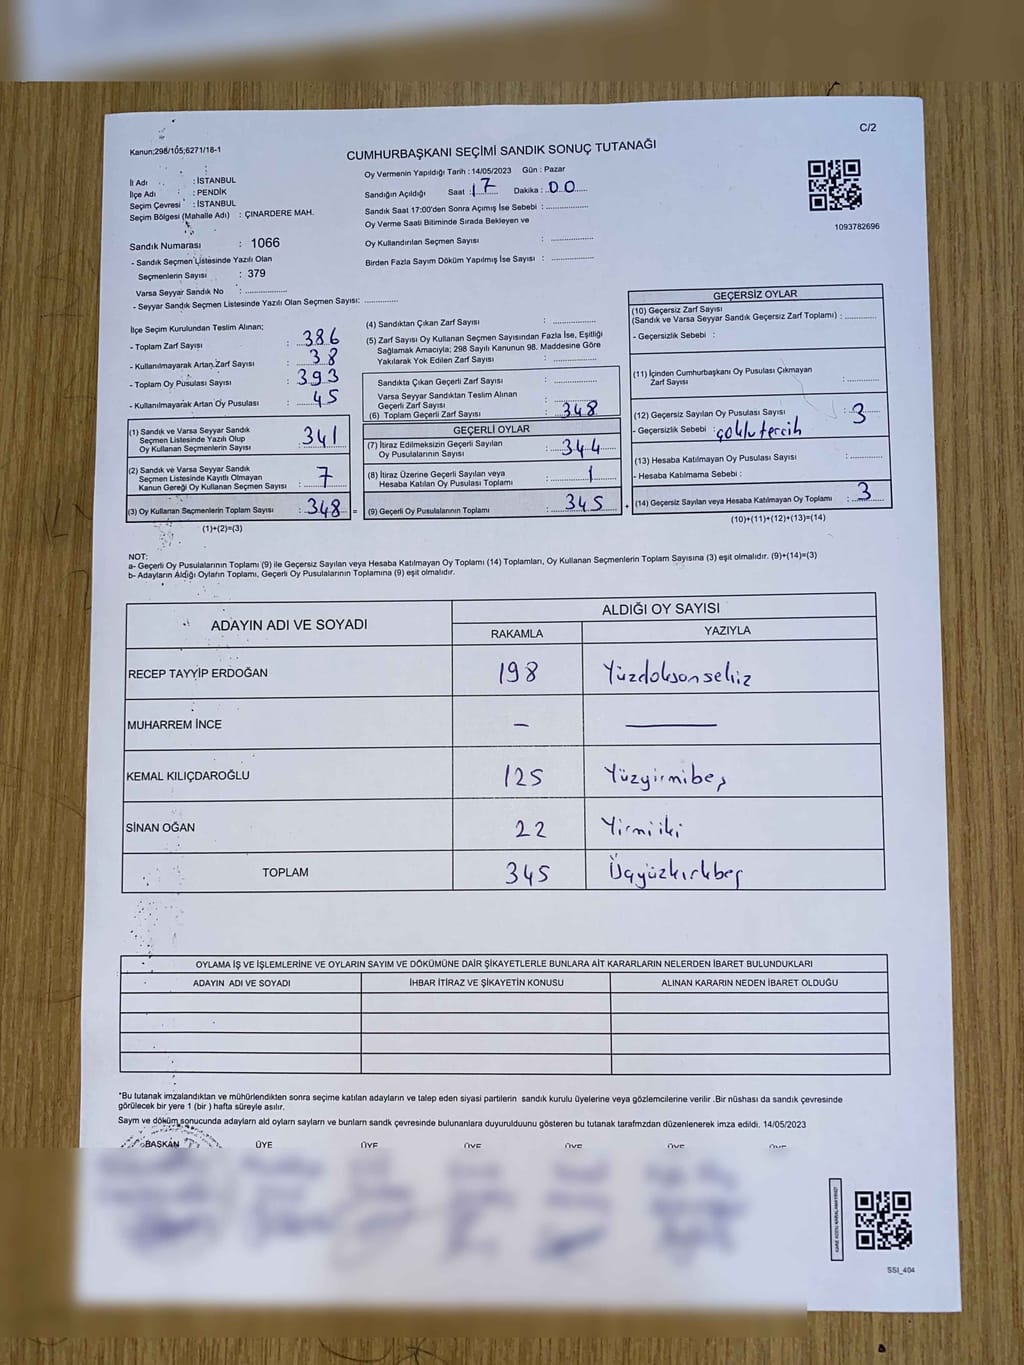 C/2
Kanun;298/105;6271/18-1
CUMHURBAŞKANI SEÇİMİ SANDIK SONUÇ TUTANAĞI
İl Adı : İSTANBUL
İlçe Adı : PENDİK
Seçim Çevresi : İSTANBUL
Seçim Bölgesi (Mahalle Adı) : ÇINARDERE MAH.
Oy Vermenin Yapıldığı Tarih : 14/05/2023 Gün : Pazar
Sandığın Açıldığı Saat : 17 Dakika : 00
Sandık Saat 17:00'den Sonra Açımış İse Sebebi :
Oy Verme Saati Bitiminde Sırada Bekleyen ve
Oy Kullandırılan Seçmen Sayısı :
Birden Fazla Sayım Döküm Yapılmış İse Sayısı :
1093782696
Sandık Numarası : 1066
- Sandık Seçmen Listesinde Yazılı Olan
Seçmenlerin Sayısı : 379
Varsa Seyyar Sandık No :
- Seyyar Sandık Seçmen Listesinde Yazılı Olan Seçmen Sayısı:
İlçe Seçim Kurulundan Teslim Alınan;
- Toplam Zarf Sayısı : 386
- Kullanılmayarak Artan Zarf Sayısı : 38
- Toplam Oy Pusulası Sayısı : 393
- Kullanılmayarak Artan Oy Pusulası : 45
(1) Sandık ve Varsa Seyyar Sandık
Seçmen Listesinde Yazılı Olup
Oy Kullanan Seçmenlerin Sayısı : 341
(2) Sandık ve Varsa Seyyar Sandık
Seçmen Listesinde Kayıtlı Olmayan
Kanun Gereği Oy Kullanan Seçmen Sayısı : 7
(3) Oy Kullanan Seçmenlerin Toplam Sayısı : 348 =
(1)+(2)=(3)
(4) Sandıktan Çıkan Zarf Sayısı :
(5) Zarf Sayısı Oy Kullanan Seçmen Sayısından Fazla İse, Eşitliği
Sağlamak Amacıyla; 298 Sayılı Kanunun 98. Maddesine Göre
Yakılarak Yok Edilen Zarf Sayısı :
Sandıkta Çıkan Geçerli Zarf Sayısı :
Varsa Seyyar Sandıktan Teslim Alınan
Geçerli Zarf Sayısı :
(6) Toplam Geçerli Zarf Sayısı : 348
GEÇERLİ OYLAR
(7) İtiraz Edilmeksizin Geçerli Sayılan
Oy Pusulalarının Sayısı : 344
(8) İtiraz Üzerine Geçerli Sayılan veya
Hesaba Katılan Oy Pusulası Toplamı : 1
(9) Geçerli Oy Pusulalarının Toplamı : 345 +
GEÇERSİZ OYLAR
(10) Geçersiz Zarf Sayısı
(Sandık ve Varsa Seyyar Sandık Geçersiz Zarf Toplamı) :
- Geçersizlik Sebebi :
(11) İçinden Cumhurbaşkanı Oy Pusulası Çıkmayan
Zarf Sayısı :
(12) Geçersiz Sayılan Oy Pusulası Sayısı : 3
- Geçersizlik Sebebi : çoklu tercih
(13) Hesaba Katılmayan Oy Pusulası Sayısı :
- Hesaba Katılmama Sebebi :
(14) Geçersiz Sayılan veya Hesaba Katılmayan Oy Toplamı : 3
(10)+(11)+(12)+(13)=(14)
NOT:
a- Geçerli Oy Pusulalarının Toplamı (9) ile Geçersiz Sayılan veya Hesaba Katılmayan Oy Toplamı (14) Toplamları, Oy Kullanan Seçmenlerin Toplam Sayısına (3) eşit olmalıdır. (9)+(14)=(3)
b- Adayların Aldığı Oyların Toplamı, Geçerli Oy Pusulalarının Toplamına (9) eşit olmalıdır.
ADAYIN ADI VE SOYADI ALDIĞI OY SAYISI
RAKAMLA YAZIYLA
RECEP TAYYİP ERDOĞAN 198 Yüzdoksansekiz
MUHARREM İNCE –
KEMAL KILIÇDAROĞLU 125 Yüzyirmibeş
SİNAN OĞAN 22 Yirmiiki
TOPLAM 345 Üçyüzkırkbeş
OYLAMA İŞ VE İŞLEMLERİNE VE OYLARIN SAYIM VE DÖKÜMÜNE DAİR ŞİKAYETLERLE BUNLARA AİT KARARLARIN NELERDEN İBARET BULUNDUKLARI
ADAYIN ADI VE SOYADI İHBAR İTİRAZ VE ŞİKAYETİN KONUSU ALINAN KARARIN NEDEN İBARET OLDUĞU
*Bu tutanak imzalandıktan ve mühürlendikten sonra seçime katılan adayların ve talep eden siyasi partilerin sandık kurulu üyelerine veya gözlemcilerine verilir .Bir nüshası da sandık çevresinde
görülecek bir yere 1 (bir ) hafta süreyle asılır.
Sayım ve döküm sonucunda adayların ald oyların sayıları ve bunların sandk çevresinde bulunanlara duyurulduunu gösteren bu tutanak tarafmzdan düzenlenerek imza edildi. 14/05/2023
BAŞKAN ÜYE ÜYE ÜYE ÜYE ÜYE ÜYE
SSI_404